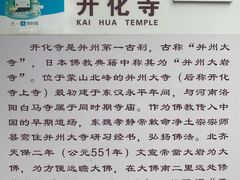 开化寺
KAI HUA TEMPLE
开化寺是并州第一古刹，古称“并州大
寺”，日本佛教典籍中称其为“并州大岩
寺”。位于蒙山北峰的并州大寺（后称开化
寺上寺）最初建于东汉永平年间，与河南洛
阳白马寺属于同时期寺庙。作为佛教传入中
国的早期道场，东魏孝静帝敕命净土宗宗师
昙鸾住并州大寺研习经书，弘扬佛法。北齐
天保二年（公元551年）文宣帝凿大岩为大
佛，为方便远瞻大佛，在大佛南二里远处修